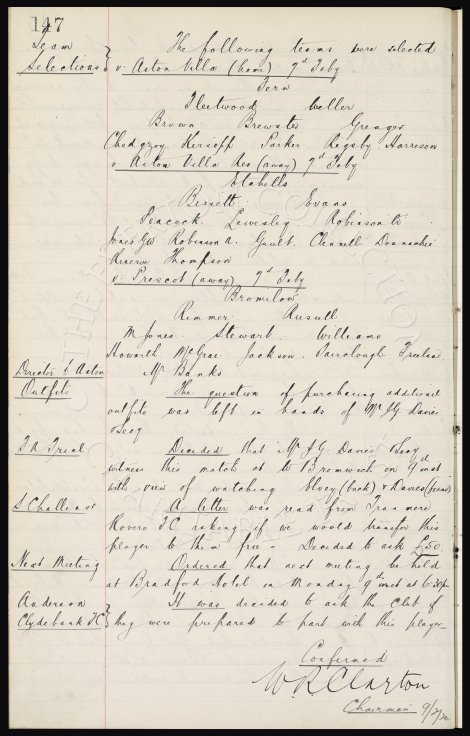 147
Team The following teams were selected
Selections } v. Aston Villa (home) 7th Feby
Fern
Fleetwood Weller
Brown Brewster Grenyer
Chedgzoy Kirsopp Parker Rigsby Harrison
v Aston Villa Res (away) 7th Feby
Etchells
Berrett Evans
Peacock Lewesley Robinson W
Jones GW Robinson A. Gault. Clennell Donnachie
Reserve Thompson
v. Prescot (away) 7th Feby
Bromilow
Rimmer Russell
M Jones. Stewart. Williams
Howarth McGrae. Jackson. Fairclough
Director to Aston Mr Banks
Outfits The question of purchasing additional
outfits was left in hands of Mr J.G. Davies
& Secy
F.A Trial Decided that Mr J.G. Davies & Secy
witness this match at W Bromwich on 9th inst
with view of watching (back) & Davies
S Challinor A letter was read from Tranmere
Rovers FC asking if we would transfer this
player to them free - Decided to ask £50.
Next Meeting Ordered that next meeting be held
at Bradford Hotel on Monday 9th inst at 6.30pm
Anderson It was decided to ask the Club if
Clydebank FC } they were prepared to part with this player -
Confirmed
W R Clayton
Chairman 9/2/20